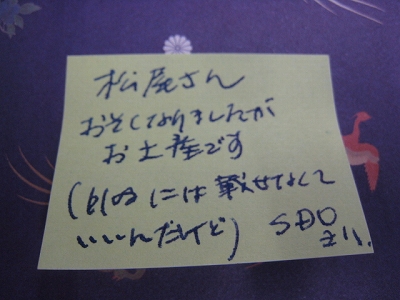 松尾さん
おそくなりましたが
お土産です
(blogには載せなくて
いいんだけど) SDO